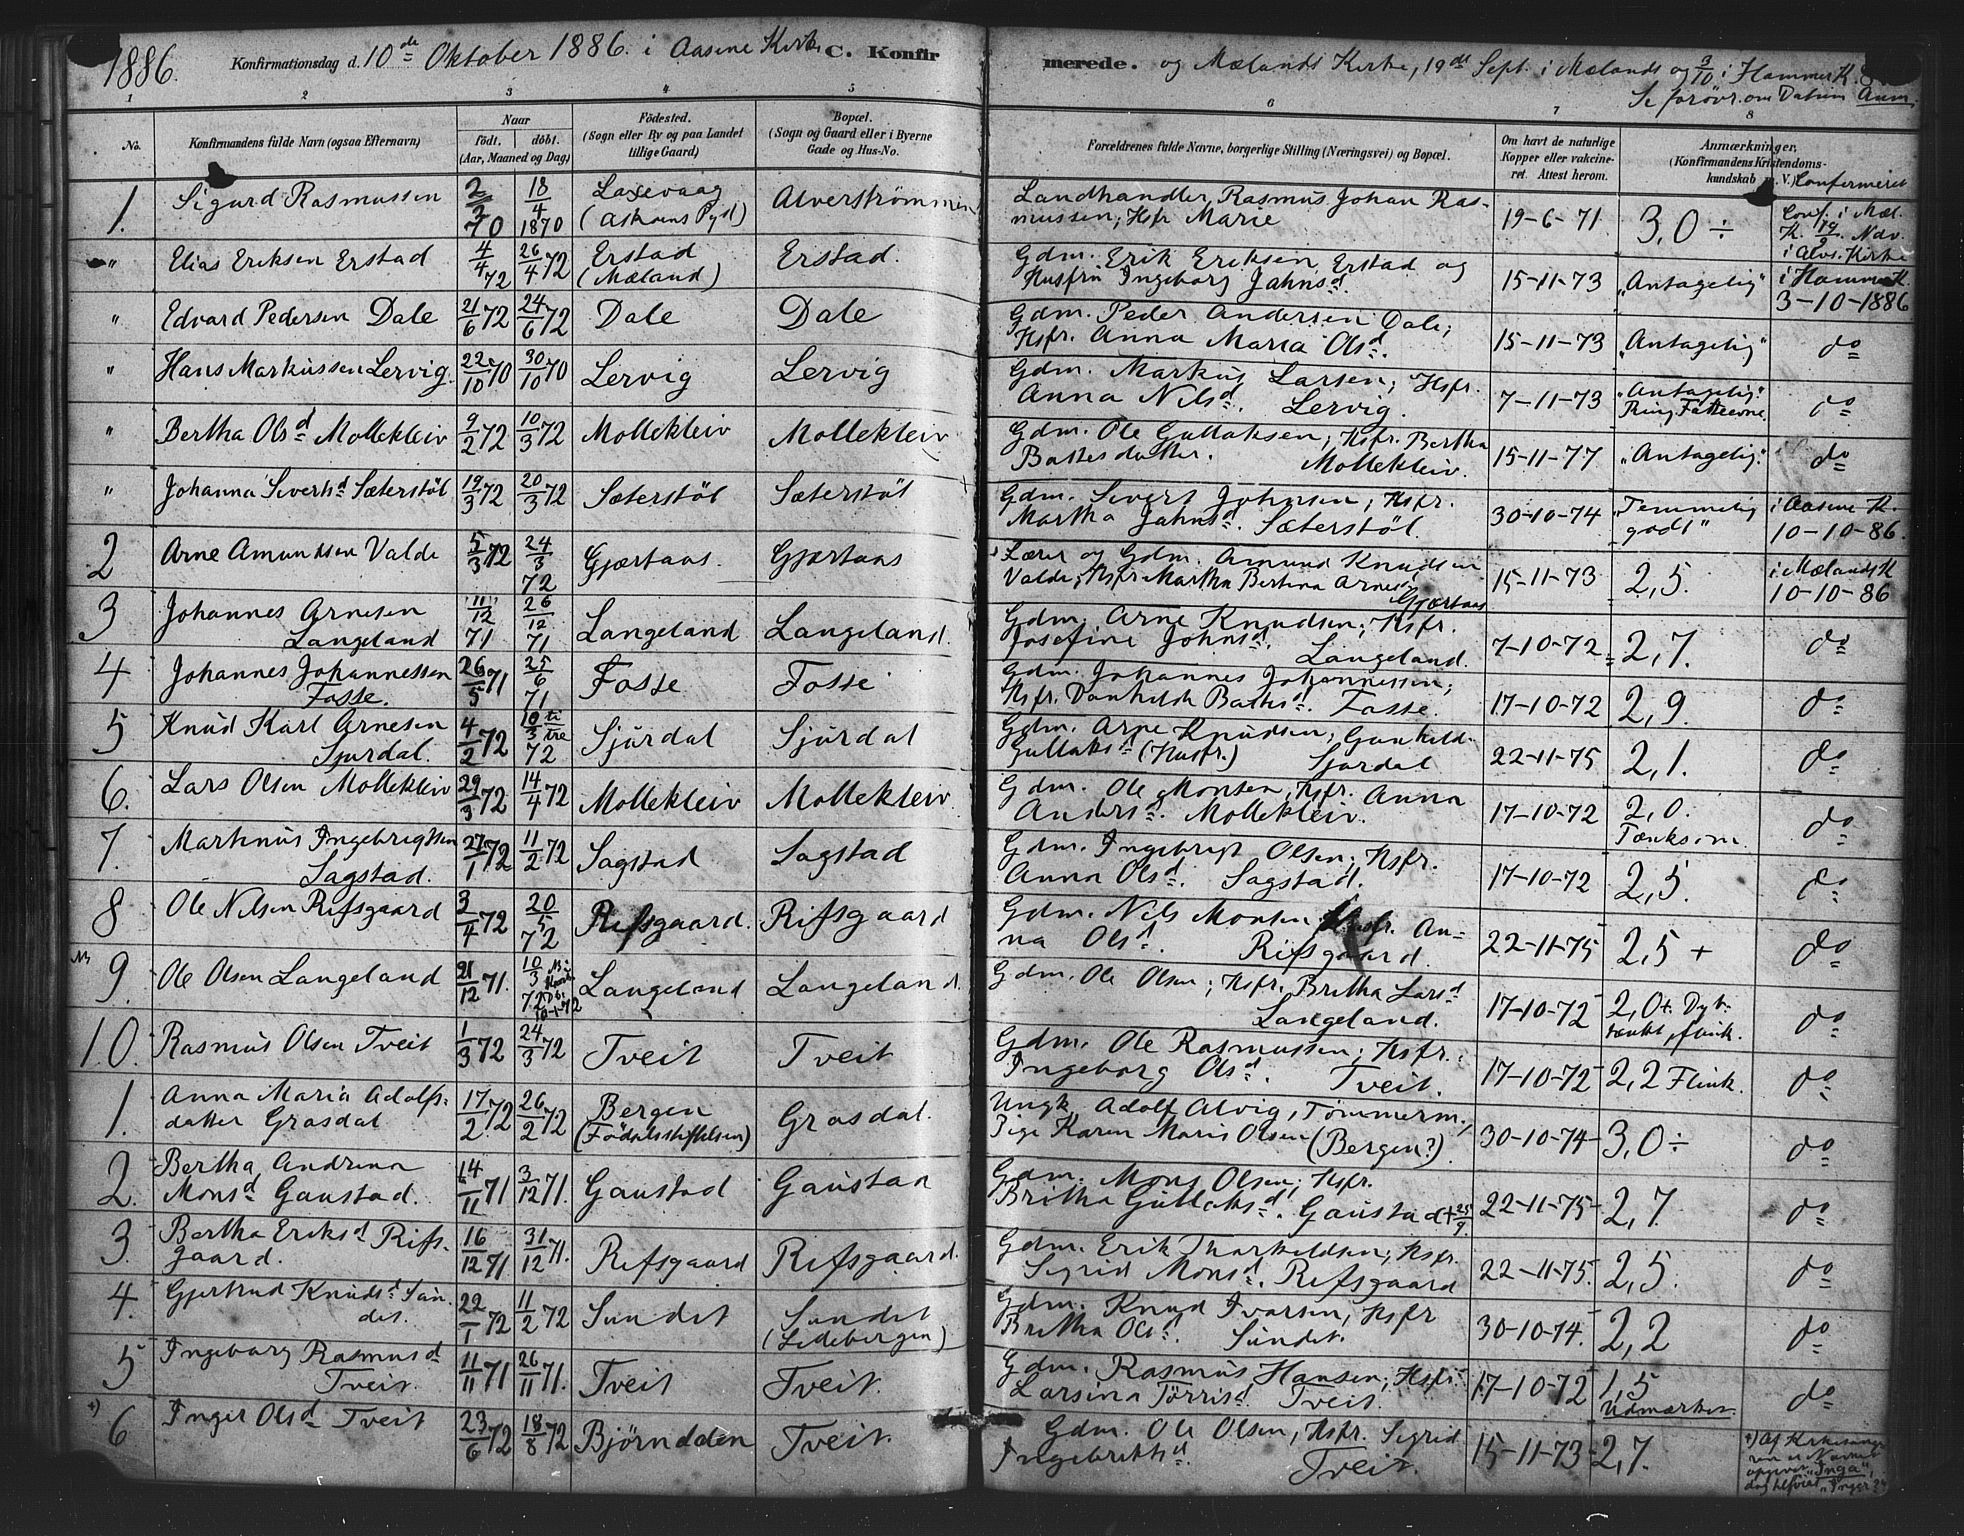 1886. Konfirmationsdag d. 10de Oktober 1886. i Aasene Kirke C. Konfirmerede. og Mælands Kirke, 19de Sept. i Mælands og 3/10 i Hammer K.
Se forøvr. om Datum Anm.
1 2 3 4 5 6 7 8
No. Konfirmandens fulde Navn (ogsaa Efternavn) Naar født. døbt. (Aar, Maaned og Dag) Fødested. (Sogn eller By og paa Landet tillige Gaard) Bopæl. (Sogn og Gaard eller i Byerne Gade og Hus-No. Forældrenes fulde Navne, borgerlige Stilling (Næringsvei) og Bopæl. Om havt de naturlige Kopper eller vakcineret. Attest herom. Anmærkninger, (Konfirmandens Kristendomskundskab m. V.) Confermeret
1. Sigurd Rasmussen 2/2 70 18/4 1870 Laxevaag (Askøens Pgd) Alverstrømmen Landhandler Rasmus Johan Rasmussen; Hsfr Marie 19-6-71 3,0 ÷ Conf. i Mæl. K. 19/9. Ndv. i Alvs. Kirke
" Elias Eriksen Erstad 4/4 72 26/4 72 Erstad (Mæland) Erstad. Gdm. Erik Eriksen Erstad og Husfru Ingeborg Jahnsd. 15-11-73 "Antagelig" i Hammer K. 3-10-1886
" Edvard Pedersen Dale 21/6 72 24/6 72 Dale Dale Gdm. Peder Andersen Dale; Hsfr. Anna Maria Olsd. 15-11-73 "Antagelig" do
" Hans Markussen Lervig. 22/10 70 30/10 70 Lervig Lervig Gdm. Markus Larsen; Hsfr. Anna Nilsd. Lervig. 7-11-73 "Antagelig." Ring. Fatteevne do
" Bertha Olsd Mollekleiv 9/2 72 10/3 72 Mollekleiv Mollekleiv Gdm. Ole Gullaksen; Hsfr. Bertha Battesdatter. Mollekleiv. 15-11-77 "Antagelig." do
" Johanna Sivertsd Sæterstøl 19/3 72 20/3 72 Sæterstøl Sæterstøl Gdm. Sivert Johnsen; Hsfr. Martha Jahnsd. Sæterstøl. 30-10-74 "Temmelig godt" i Aasene K. 10-10-86.
2 Arne Amundsen Valde 5/3 72 24/3 72 Gjærtaas. Gjærtaas Lærer og Gdm. Amund Knudsen Valde; Hsfr Martha Bertina Arnesd. Gjærtaas 15-11-73 2,5. i Mælands K 10-10-86
3 Johannes Arnesen Langeland 11/12 71 26/12 71 Langeland Langeland. Gdm. Arne Knudsen; Hsfr. Josefine Johnsd. Langeland. 7-10-72 2,7. do
4 Johannes Johannessen Fosse. 26/5 71 25/6 71 Fosse Fosse Gdm. Johannes Johannessen; Hsfr. Danhilde Battesd. Fosse. 17-10-72 2,9. do
5 Knud Karl Arnesen Sjurdal. 4/2 72 10/3 ti tre 72 Sjurdal Sjurdal Gdm. Arne Knudsen; Gunhild Gullaksd (Husfr.) Sjurdal 22-11-75 2,1. do
6. Lars Olsen Mollekleiv 29/3 72 14/4 72 Mollekleiv Mollekleiv. Gdm. Ole Monsen, Hsfr. Anna Andersd. Mollekleiv. 17-10-72 2,0. Tænksom. do
7. Martinus Ingebrigtsen Sagstad. 27/1 72 11/2 72 Sagstad Sagstad Gdm. Ingebrigt Olsen; Hsfr. Anna Olsd. Sagstad. 17-10-72 2,5. do
8 Ole Nilsen Rifsgaard 3/4 72 20/5 72 Rifsgaard. Rifsgaard Gdm. Nils Monsen Hsfr. Anna Olsd. Rifsgaard. 22-11-75 2,5 + do
9. Ole Olsen Langeland 21/12 71. 10/3 72 Langeland Langeland. Gdm. Ole Olsen; Hsfr. Britha Larsd Langeland. 17-10-72 2,0+. Dybtænkt, flink. do
10. Rasmus Olsen Tveit 1/3 72 24/3 72 Tveit Tveit Gdm. Ole Rasmussen; Hsfr. Ingeborg Olsd. Tveit. 17-10-72 2,2 Flink. do
1. Anna Maria Adolfsdatter Grasdal 17/2 72 26/2 72 Bergen (Fødselsstiftelsen) Grasdal. Ungk. Adolf Alvig, Tømmerm.; Pige Karen Maris Olsen (Bergen?) 30-10-74 3,0 ÷ do
2. Bertha Andrina Monsd Gaustad. 14/11 71 3/12 71. Gaustad Gaustad Gdm. Mons Olsen; Hsfr. Britha Gullaksd. Gaustad + 25/9. 22-11-75 2,7. do
3. Bertha Eriksd Rifsgaard. 16/12 71 31/12 71. Rifsgaard Rifsgaard. Gdm. Erik Thorkildsen; Hsfr. Sigrid Monsd. Rifsgaard 22-11-75. 2,5. do
4. Gjertrud Knudsd Sundet. 22/1 72 11/2 72 Sundet Sundet (Lidebergen) Gdm. Knud Ivarsen, Hsfr Britha Olsd. Sundet. 30-10-74. 2,2 do
5 Ingeborg Rasmusd Tveit. 11/11 71 26/11 71. Tveit Tveit. Gdm. Rasmus Hansen; Hsfr. Larsina Tørrisd. Tveit. 17-10-72 1,5 Udmærket. do
+) 6 Inger Olsd Tveit 23/6 72 18/8 72 Bjørndalen Tveit. Gdm. Ole Olsen, Hsfr. Sigrid Ingebriktsd. Tveit. 15-11-73 2,7. +) Af Kirkesangeren er Navnet opgivet "Inga",